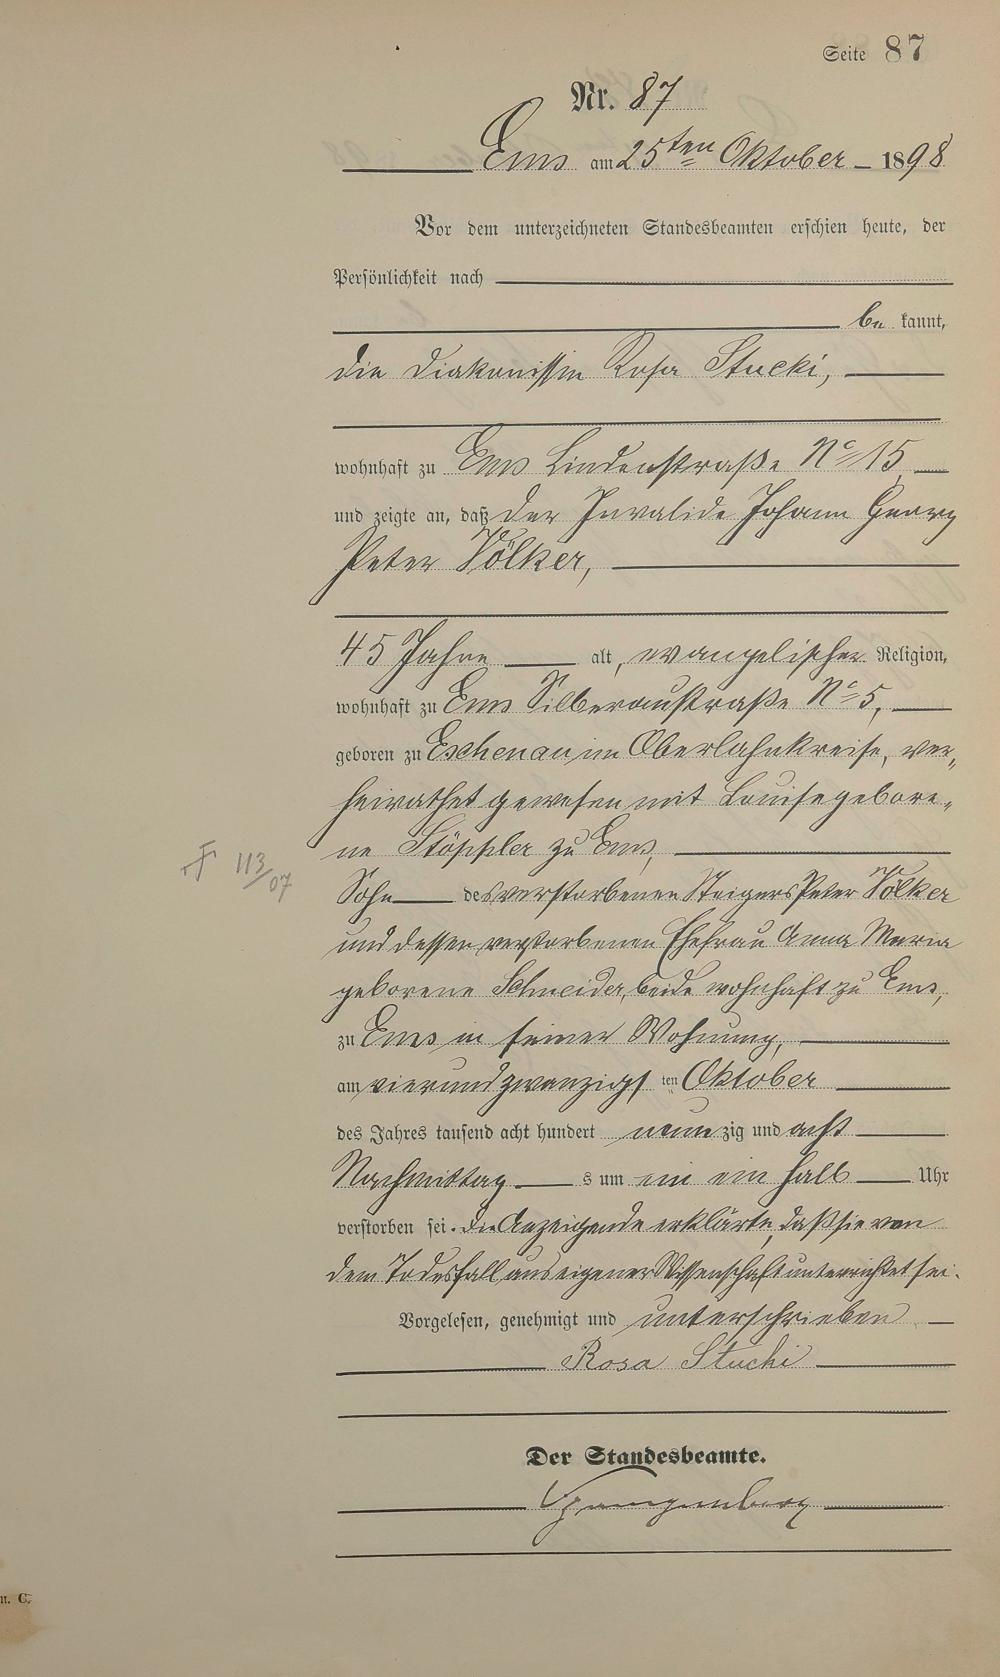 Seite 87
Nr. 87
Ems am 25ten Oktober 1898
Vor dem unterzeichneten Standesbeamten erschien heute, der
Persönlichkeit nach
be kannt,
die Diakonissin Rosa Stucki,
wohnhaft zu Ems Lindenstraße No 15
und zeigte an, daß der Invalide Johann Georg
Peter Völker,
45 Jahre alt, evangelischer Religion,
wohnhaft zu Ems Silberaustraße No 5,
geboren zu Eschenau im Oberlahnkreise, ver„
heirathet gewesen mit Louise gebore„
ne Stöppler zu Ems,
F 113/07
Sohn des verstorbenen Steigers Peter Völker
und dessen verstorbenen Ehefrau Anna Maria
geborene Schneider, beide wohnhaft zu Ems,
zu Ems in seiner Wohnung,
am vierundzwanzigst ten Oktober
des Jahres tausend acht hundert neun zig und acht
Nachmittag s um ein ein halb Uhr
verstorben sei. Die Anzeigende erklärte, daß sie von
dem Todesfall aus eigener Wissenschaft unterrichtet sei.
Vorgelesen, genehmigt und unterschrieben
Rosa Stucki
Der Standesbeamte.
Spangenberg